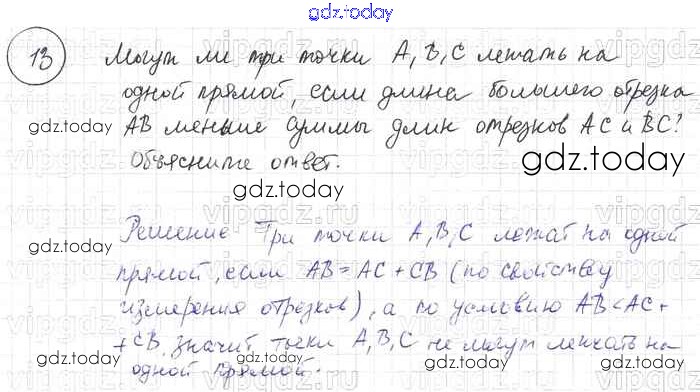 gdz.today
13 Могут ли три точки A, B, C лежать на
одной прямой, если длина большего отрезка
AB меньше суммы длин отрезков AC и BC?
gdz.today
Объясните ответ.
gdz.today
gdz.today
Решение Три точки A, B, C лежат на одной
gdz.today
прямой, если AB = AC + CB (по свойству
измерения отрезков), а по условию AB < AC +
+ CB, значит точки A, B, C не могут лежать на
одной прямой.
gdz.today
gdz.today
gdz.today